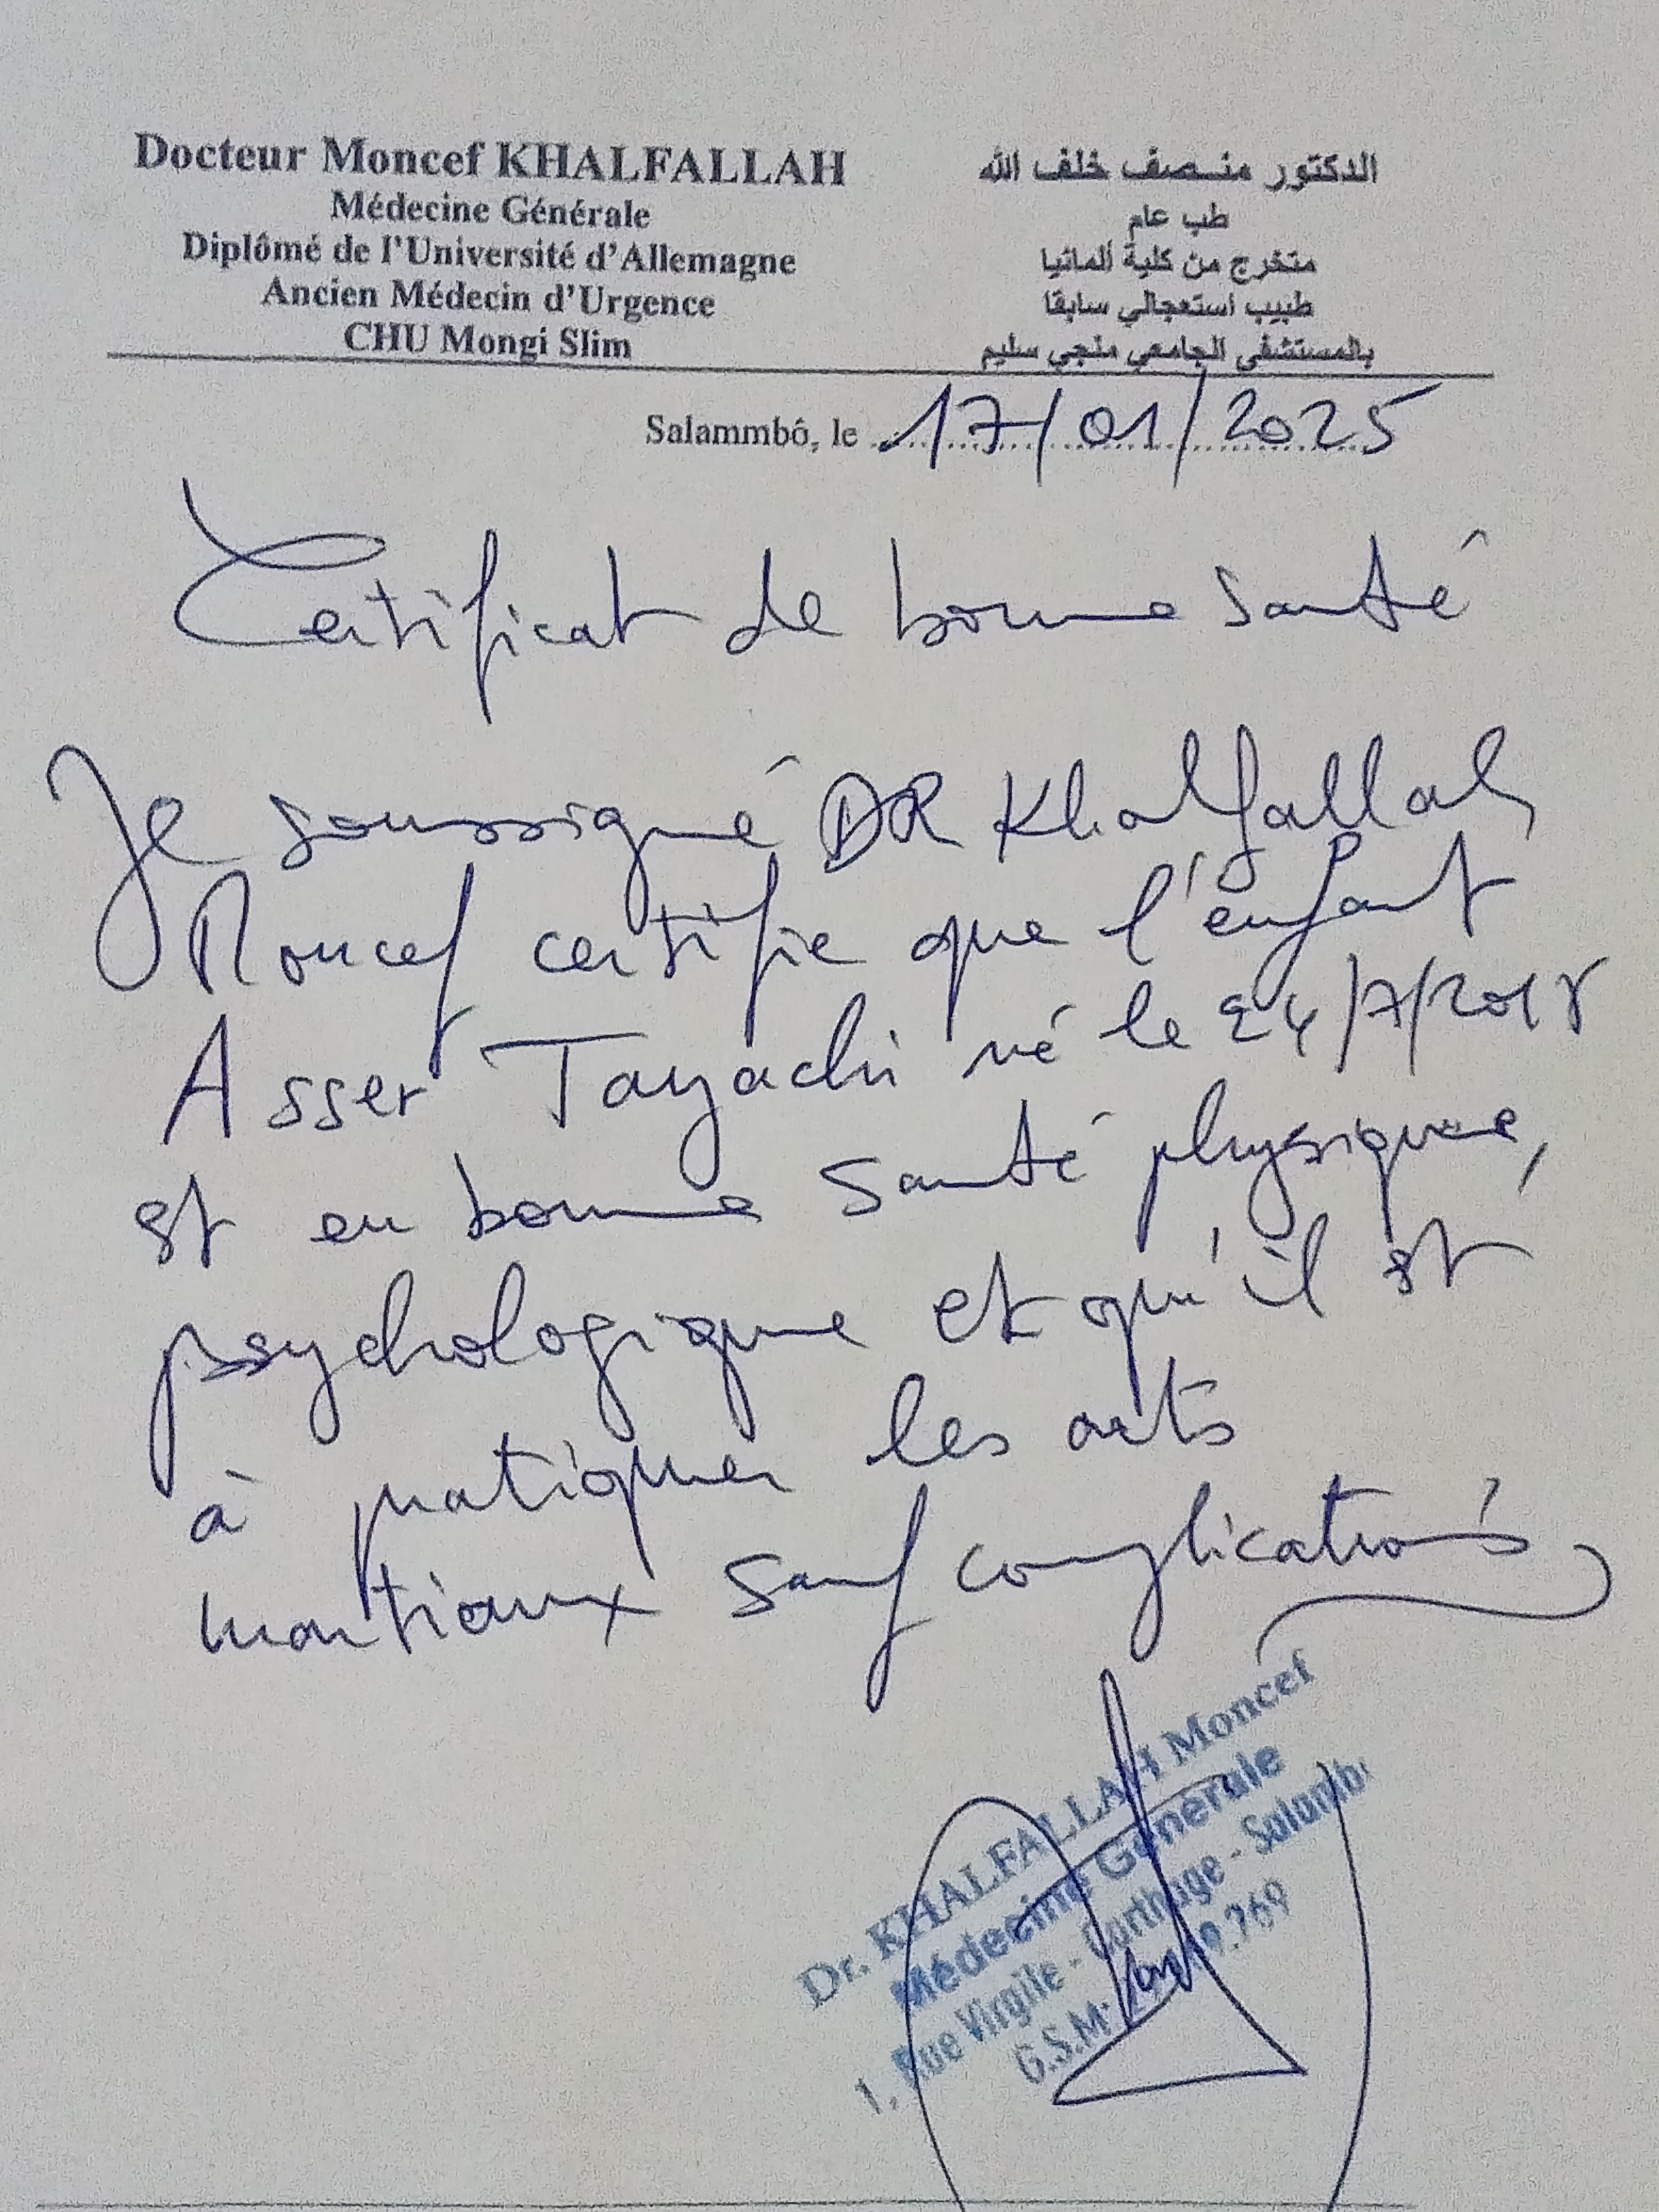 Docteur Moncef KHALFALLAH
Médecine Générale
Diplômé de l'Université d'Allemagne
Ancien Médecin d'Urgence
CHU Mongi Slim
الدكتور منصف خلف الله
طب عام
متخرج من كلية ألمانيا
طبيب استعجالي سابقا
بالمستشفى الجامعي منجي سليم
Salammbô, le 17/01/2025
Certificat de bonne santé
Je soussigné DR Khalfallah
Moncef certifie que l'enfant
Asser Tayachi né le 24/7/2018
est en bonne santé physique,
psychologique et qu'il est
à pratiquer les arts
martiaux sauf complications
Dr. KHALFALLAH Moncef
Médecine Générale
1, Rue Virgile - Carthage - Salamb
G.S.M: 769